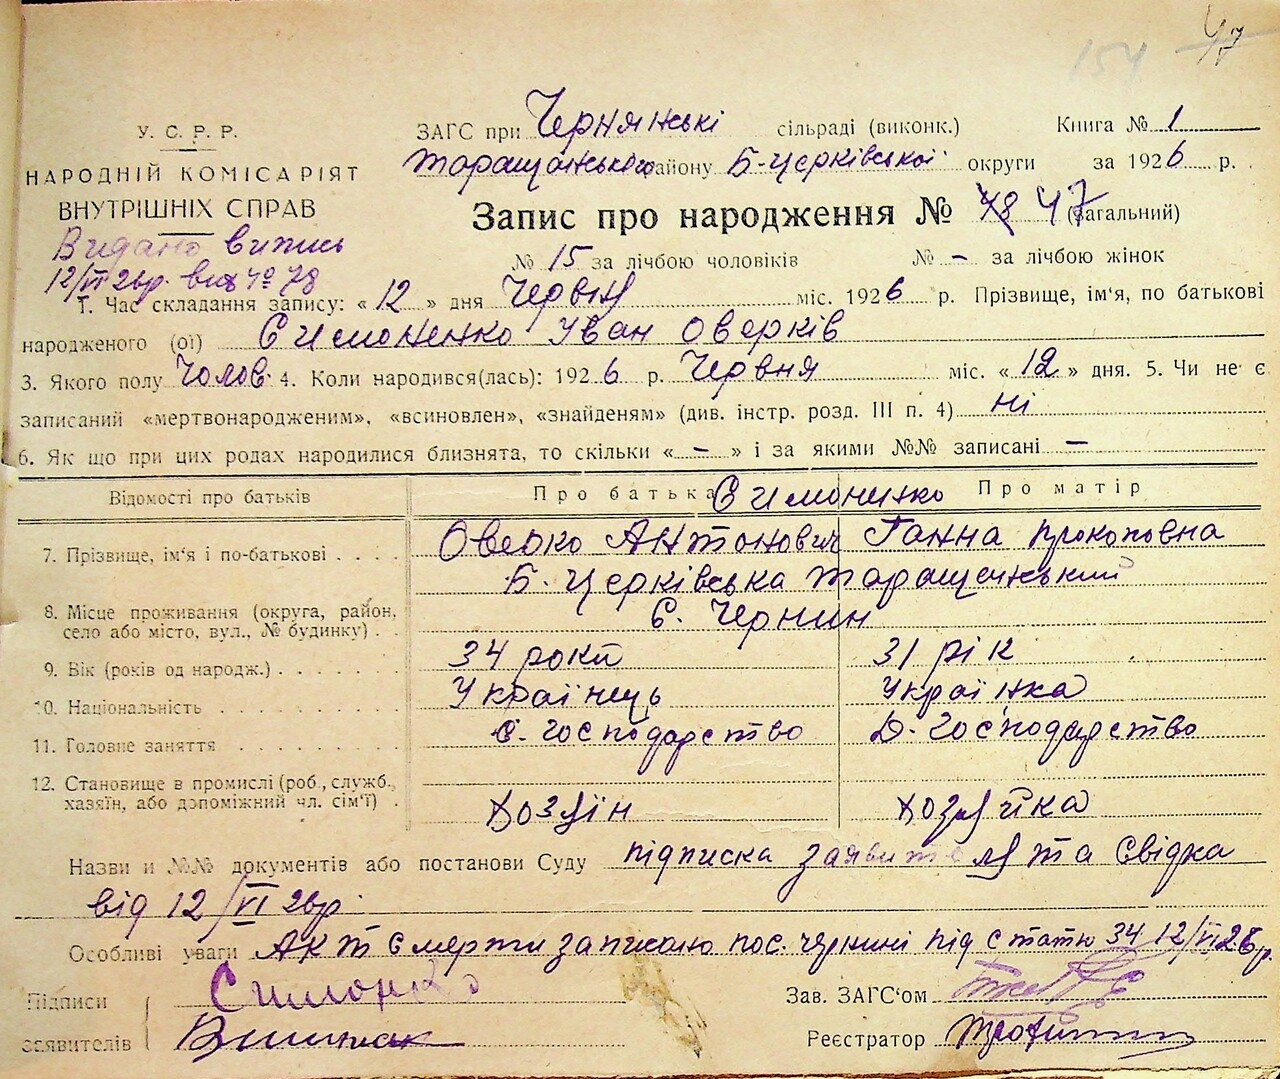 154 47
У. С. Р. Р.
НАРОДНІЙ КОМІСАРІЯТ
ВНУТРІШНІХ СПРАВ
Видано випись
12/VI 26р. вих № 78
ЗАГС при Чернянські сільраді (виконк.) Книга № 1
Таращанського району Б-Церківської округи за 1926 р.
Запис про народження № 78 47 (загальний)
№ 15 за лічбою чоловіків № – за лічбою жінок
1. Час складання запису: « 12 » дня Червня міс. 1926 р. Прізвище, ім'я, по батькові
народженого (ої) Симоненко Іван Оверків
3. Якого полу Чолов. 4. Коли народився(лась): 1926 р. Червня міс. « 12 » дня. 5. Чи не є
записаний «мертвонародженим», «всиновлен», «знайденям» (див. інстр. розд. III п. 4) ні
6. Як що при цих родах народилися близнята, то скільки « – » і за якими №№ записані –
Відомості про батьків Про батька Про матір
Симоненко
7. Прізвище, ім'я і по-батькові . . . . Оверко Антонович Ганна Прокоповна
Б. Церківська Таращенський
8. Місце проживання (округа, район, село або місто, вул., № будинку) . . с. Чернин
9. Вік (років од народж.) . . . . . . . 34 роки 31 рік
10. Національність . . . . . . . . Українець Українка
11. Головне заняття . . . . . . . . С. господарство Д. господарство
12. Становище в промислі (роб., служб.,
хазяїн, або допоміжний чл. сім'ї) . Хозяїн Хозяйка
Назви и №№ документів або постанови Суду підписка заявителя та свідка
від 12/VI 26р.
Особливі уваги Акт смерти записано пос. Чернині під статю 34 12/VI 26р.
Підписи Зав. ЗАГС'ом
заявителів Реєстратор